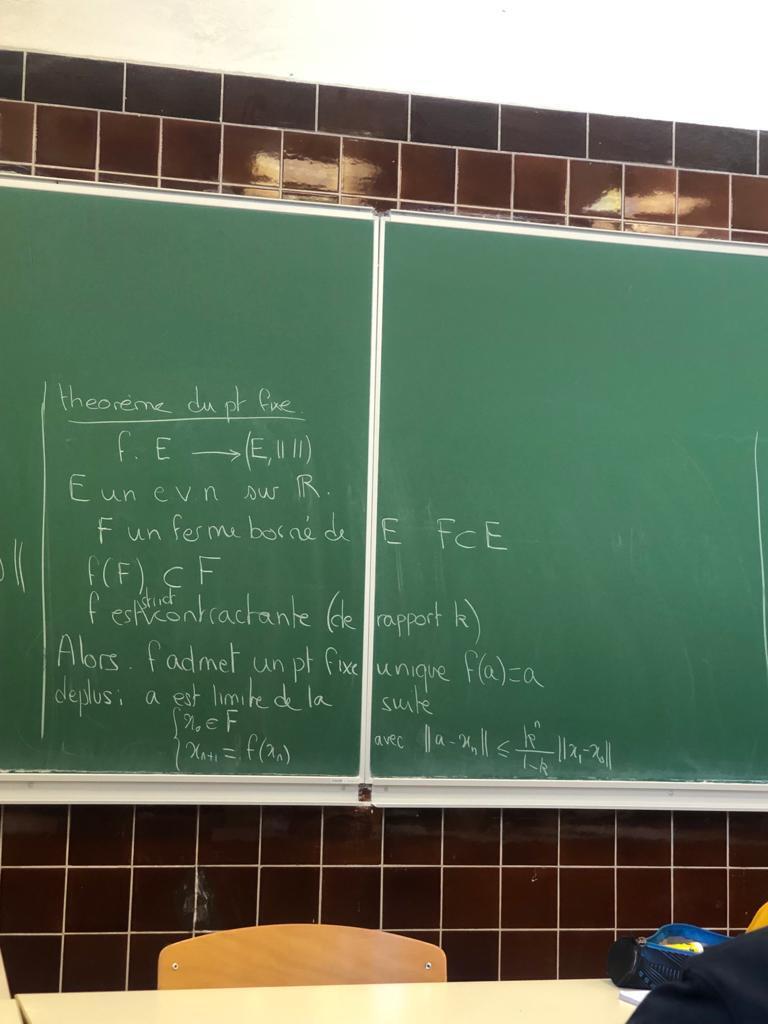 theorème du pt fixe.
f. E → (E, || ||)
E un e v n sur ℝ.
F un fermé borné de E F⊂E
f(F) ⊂ F
f est strict contractante (de rapport k)
Alors. f admet un pt fixe unique f(a)=a
deplus: a est limite de la suite
{ x₀ ∈ F
{ xₙ₊₁ = f(xₙ) avec ||a-xₙ|| ≤ kⁿ/(1-k) ||x₁-x₀||
||